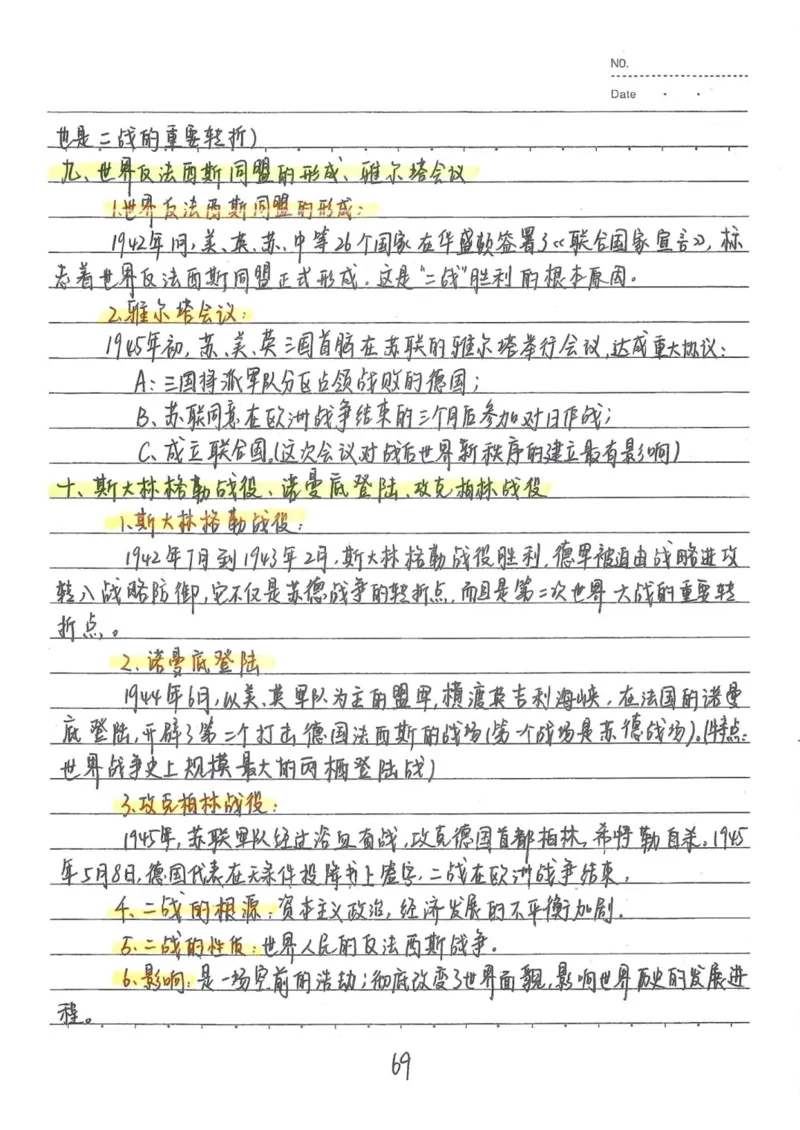 NO.
Date · ·
也是二战的重要转折)
九、世界反法西斯同盟的形成、雅尔塔会议
1.世界反法西斯同盟的形成:
1942年间,美、英、苏、中等26个国家在华盛顿签署了《联合国家宣言》,标
志着世界反法西斯同盟正式形成。这是“二战”胜利的根本原因。
2.雅尔塔会议:
1945年初,苏、美、英三国首脑在苏联的雅尔塔举行会议,达成重大协议:
A:三国将派军队分区占领战败的德国;
B、苏联同意在欧洲战争结束的三个月后参加对日作战;
C、成立联合国。(这次会议对战后世界新秩序的建立最有影响)
十、斯大林格勒战役、诺曼底登陆、攻克柏林战役
1.斯大林格勒战役:
1942年7月到1943年2月,斯大林格勒战役胜利,德军被迫由战略进攻
转入战略防御,它不仅是苏德战争的转折点,而且是第二次世界大战的重要转
折点。
2.诺曼底登陆
1944年6日,以美、英军队为主的盟军,横渡英吉利海峡,在法国的诺曼
底登陆,开辟了第二个打击德国法西斯的战场(第一个战场是苏德战场)。(特点:
世界战争史上规模最大的两栖登陆战)
3.攻克柏林战役:
1945年,苏联军队经过浴血奋战,攻克德国首都柏林。希特勒自杀。1945
年5月8日,德国代表在无条件投降书上签字,二战在欧洲战争结束。
4、二战的根源:资本主义政治,经济发展的不平衡加剧.
5.二战的性质:世界人民的反法西斯战争。
6.影响:是一场空前的浩劫;彻底改变了世界面貌,影响世界历史的发展进
程。
69